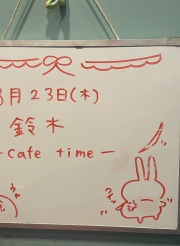 8月23日(木)
鈴木
-cafe time-